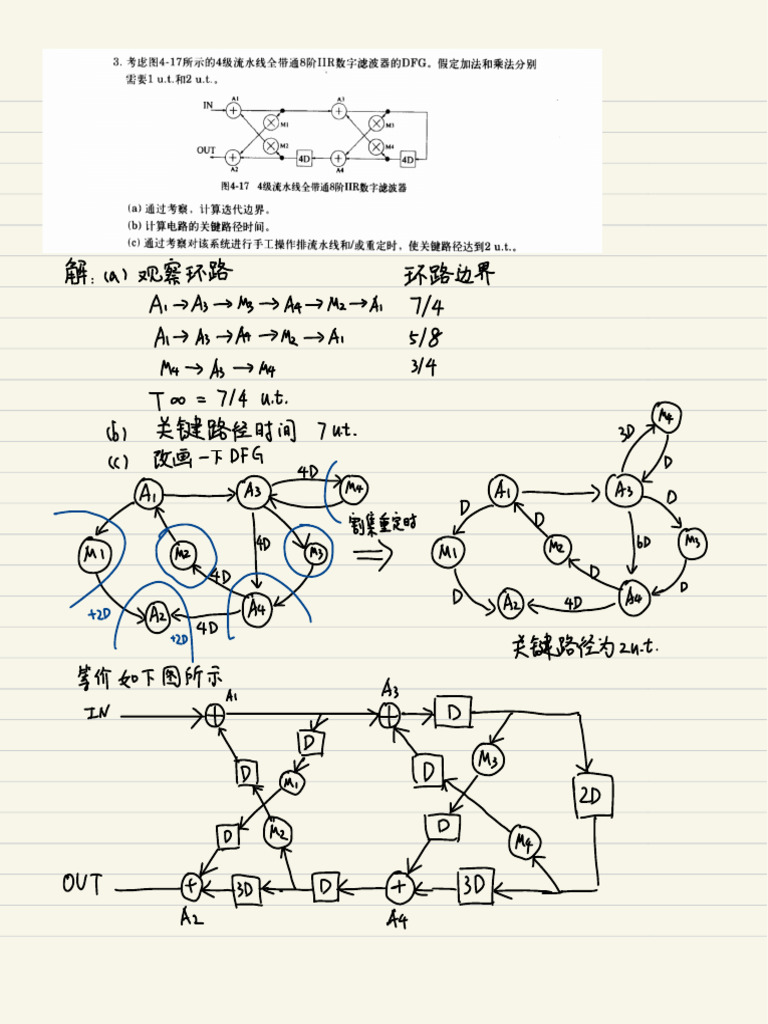 3. 考虑图4-17所示的4级流水线全带通8阶IIR数字滤波器的DFG。假定加法和乘法分别
需要1 u.t.和2 u.t.。
IN
A1
A3
M1
M3
M2
M4
OUT
4D
4D
A2
A4
图4-17 4级流水线全带通8阶IIR数字滤波器
(a) 通过考察,计算迭代边界。
(b) 计算电路的关键路径时间。
(c) 通过考察对该系统进行手工操作排流水线和/或重定时,使关键路径达到2 u.t.。
解: (a) 观察环路 环路边界
A1→A3→M3→A4→M2→A1 7/4
A1→A3→A4→M2→A1 5/8
M4→A3→M4 3/4
T∞ = 7/4 u.t.
(b) 关键路径时间 7 u.t.
(c) 改画一下DFG
A1
A3
4D
M4
M1
M2
4D
M3
4D
A2
A4
4D
+2D
+2D
割集重定时
A1
A3
3D
M4
D
D
D
D
M1
M2
6D
M3
D
D
D
A2
4D
A4
关键路径为2u.t.
等价如下图所示
IN
A1
A3
D
D
D
M1
D
M3
2D
D
M2
D
M4
OUT
3D
D
3D
A2
A4